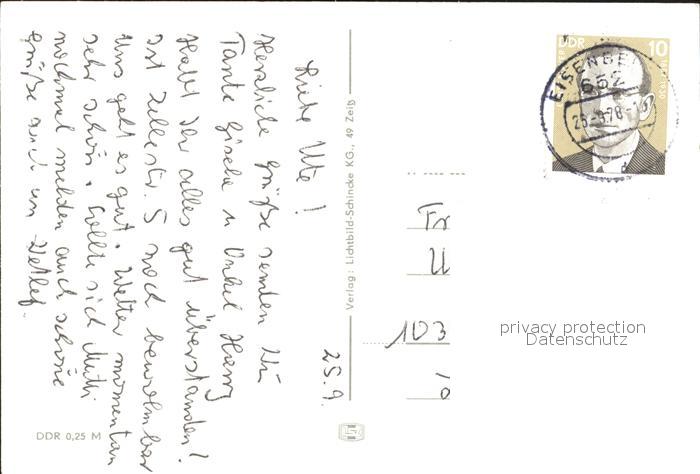 25.9.
Liebe Ute!
Herzliche Grüße senden Dir
Tante Gisela u. Onkel Harry
Habt Ihr alles gut überstanden!
Ist Zellestr. 5 noch bewohnbar
Uns geht es gut. Wetter momentan
sehr schön. Sollte sich Mutti
nochmal melden auch schöne
Grüße auch an Detlef.
Verlag: Lichtbild-Schincke KG., 49 Zeitz
DDR 0,25 M
DDR
10
EISENBE
652
25.-9.78-1
Fr
U
103
privacy protection
Datenschutz